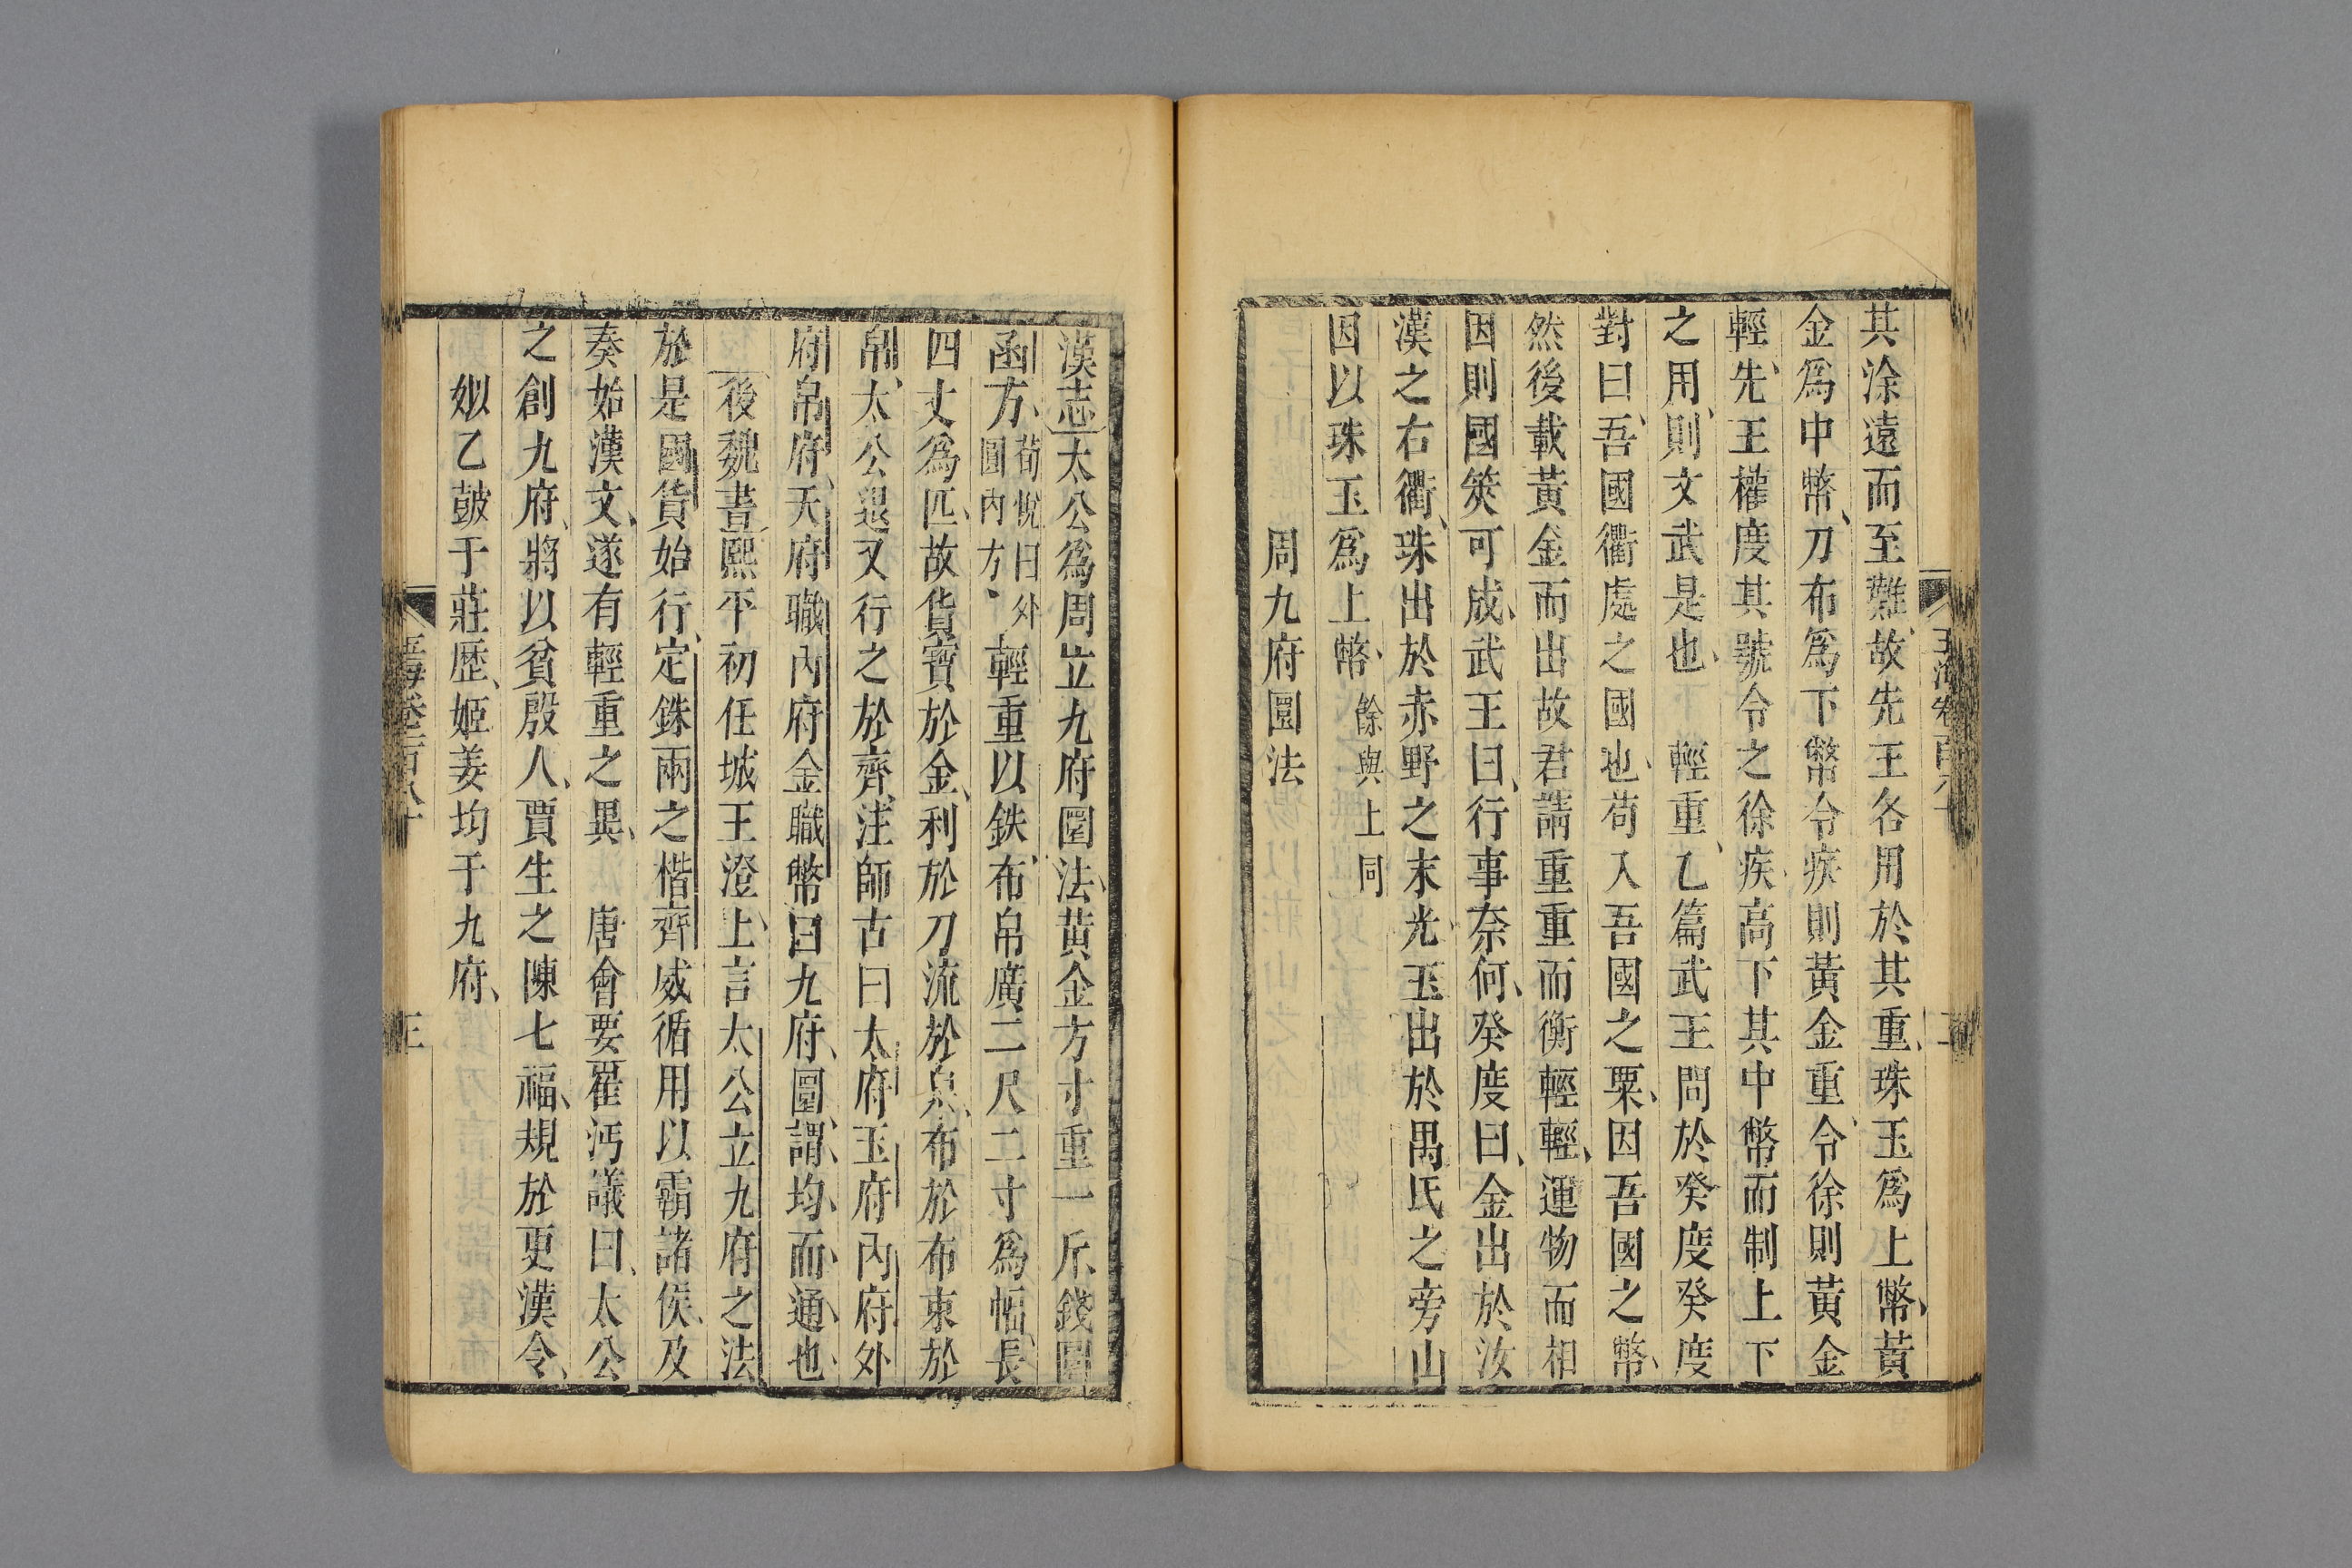 其涂遠而至難故先王各用於其重珠玉爲上幣黃
金爲中幣刀布爲下幣令疾則黃金重令徐則黃金
輕先王權度其號令之徐疾高下其中幣而制上下
之用則文武是也 輕重乙篇武王問於癸度癸度
對曰吾國衢處之國也苟入吾國之粟因吾國之幣
然後載黃金而出故君請重重而衡輕輕運物而相
因則國筴可成武王曰行事奈何癸度曰金出於汝
漢之右衢珠出於赤野之末光玉出於禺氏之旁山
因以珠玉爲上幣餘與上同
周九府圜法
漢志太公爲周立九府圜法黃金方寸重一斤錢圜
函方荀悅曰外圜內方輕重以銖布帛廣二尺二寸爲幅長
四丈爲匹故貨寶於金利於刀流於泉布於布束於
帛太公退又行之於齊注師古曰太府玉府內府外
府帛府天府職內府金職幣曰九府圜謂均而通也
後魏書熙平初任城王澄上言太公立九府之法
於是國貨始行定銖兩之楷齊威循用以霸諸侯及
奏始漢文遂有輕重之異 唐會要崔沔議曰太公
之創九府將以貧殷人賈生之陳七福規於更漢令
姒乙皷于莊歷姬姜均于九府
玉海卷百八十